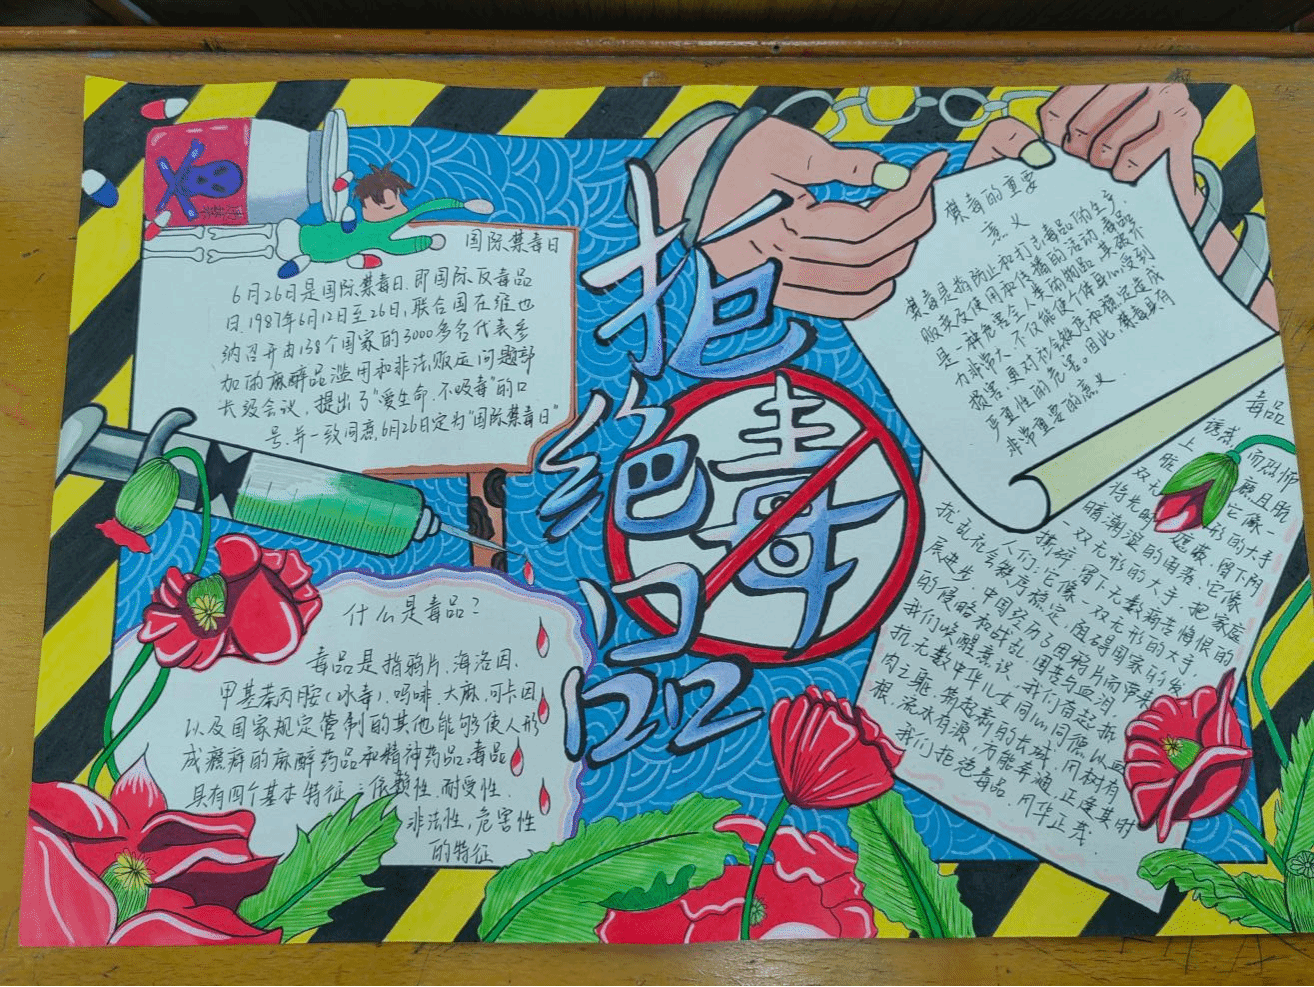 拒绝毒品
国际禁毒日
6月26日是国际禁毒日,即国际反毒品
日.1987年6月12日至26日,联合国在维也
纳召开由138个国家的3000多名代表参
加的麻醉品滥用和非法贩运问题部
长级会议,提出了"爱生命,不吸毒"的口
号,并一致同意,6月26日定为"国际禁毒日"
什么是毒品?
毒品是指鸦片,海洛因,
甲基苯丙胺(冰毒),吗啡,大麻,可卡因
以及国家规定管制的其他能够使人形
成瘾癖的麻醉药品和精神药品.毒品
具有四个基本特征:依赖性,耐受性,
非法性,危害性
的特征
禁毒的重要
意义
禁毒是指防止和打击毒品的生产,
贩卖及使用和传播的活动.毒品
是一种危害全人类的物品,其破坏
力非常大,不仅能使个体身心受到
损害,更对社会秩序和稳定造成
严重性的危害。因此,禁毒具有
非常重要的意义.
毒品
诱惑
上瘾且
而恐怖
脱
双无形的大手
将光明遮蔽,留下阴
暗潮湿的角落,它像
一双无形的大手,把家庭
撕碎,留下无数痛苦悔恨的
人们;它像一双无形的大手
抗乱社会秩序稳定,阻碍国家的发
展进步,中国经历了因鸦片而带来
的侵略和战乱,困苦与血泪
我们唤醒意识,我们奋起抵
抗,无数中华儿女同心同德,以血
肉之躯,筑起新的长城,冈树有
根,流水有源,方能奔涌,正逢其时
我们拒绝毒品,风华正茂.